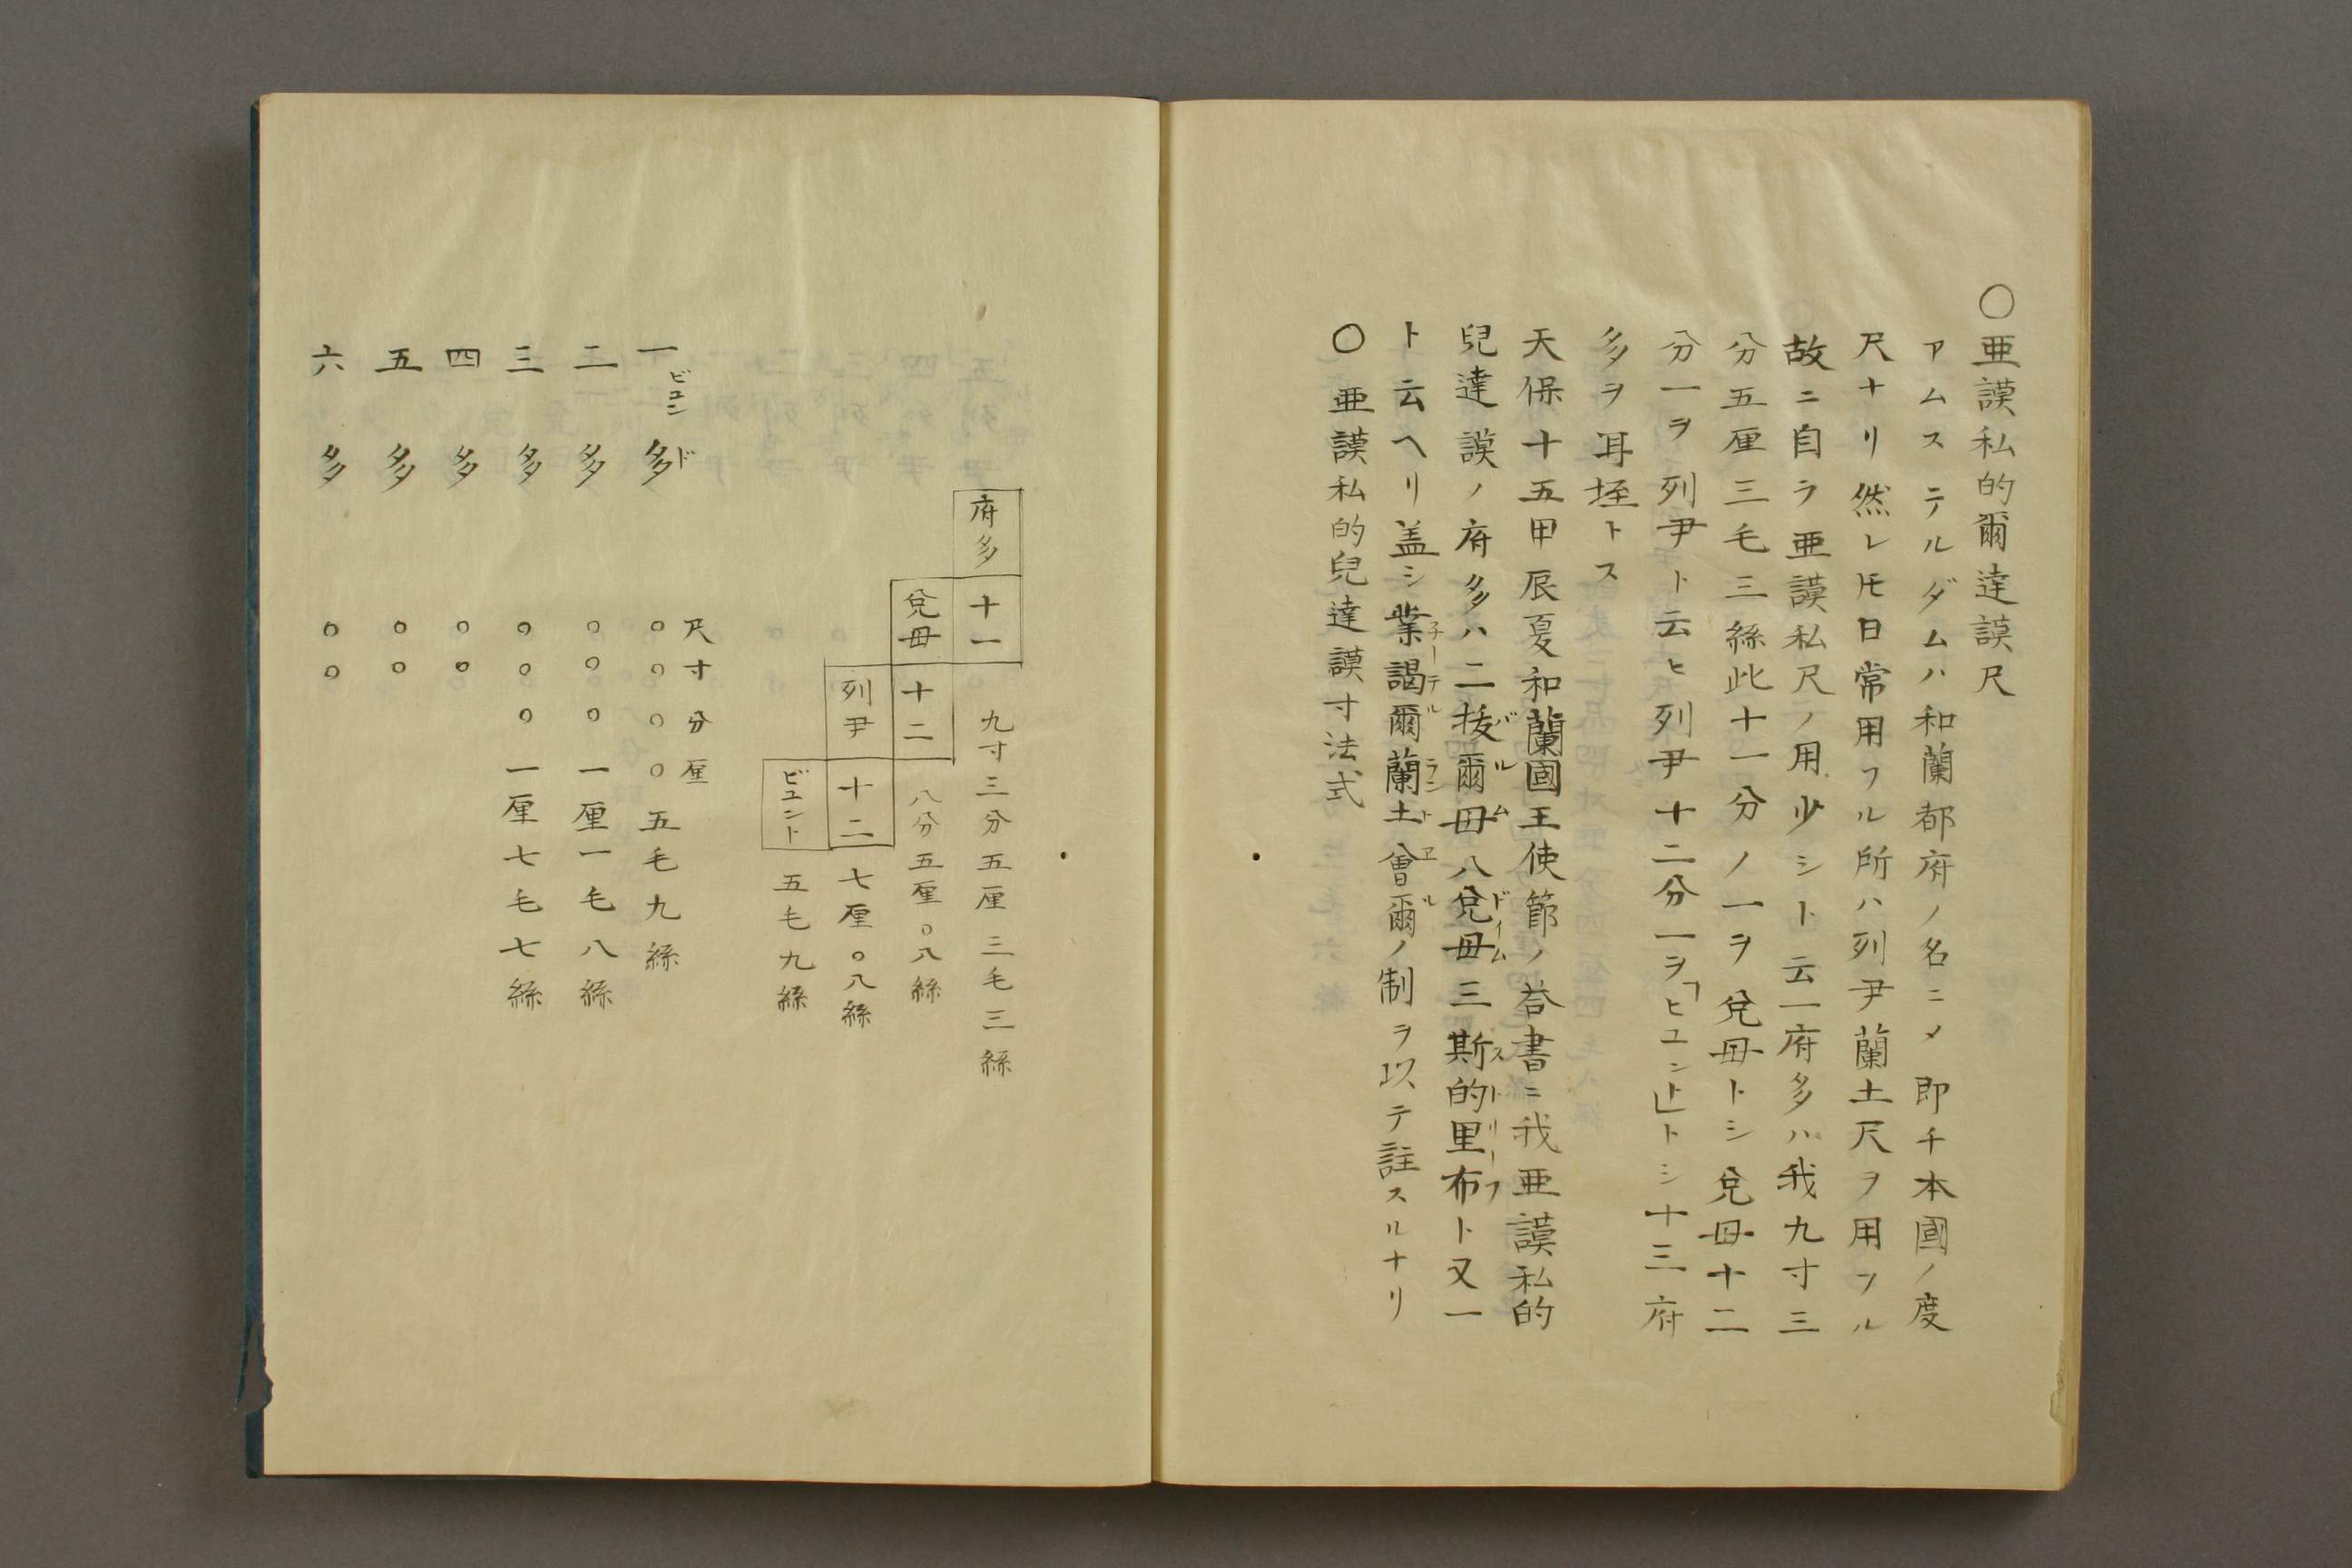 ○亜謨私的爾達謨尺
アムステルダムハ和蘭都府ノ名ニメ即チ本國ノ度
尺ナリ然レ𪜈日常用フル所ハ列尹蘭土尺ヲ用フル
故ニ自ラ亜謨私尺ノ用少シト云一府多ハ我九寸三
分五厘三毛三絲此十一分ノ一ヲ兌毋トシ兌毋十二
分一ヲ列尹ト云ヒ列尹十二分一ヲ「ヒユント」トシ十三府
多ヲ耳垤トス
天保十五甲辰夏和蘭國王使節ノ荅書ニ我亜謨私的
兒達謨ノ府多ハ二拔爾毋八兌毋三斯的里布ト又一
ト云ヘリ盖シ業謁爾蘭土會爾ノ制ヲ以テ註スルナリ
○亜謨私的兒達謨寸法式
府多 十一 九寸三分五厘三毛三絲
兌毋 十二 八分五厘○八絲
列尹 十二 七厘○八絲
ビユント 五毛九絲
尺寸分厘
一ビユン多ド ○○○○五毛九絲
二多 ○○○一厘一毛八絲
三多 ○○○一厘七毛七絲
四多 ○○
五多 ○○
六多 ○○